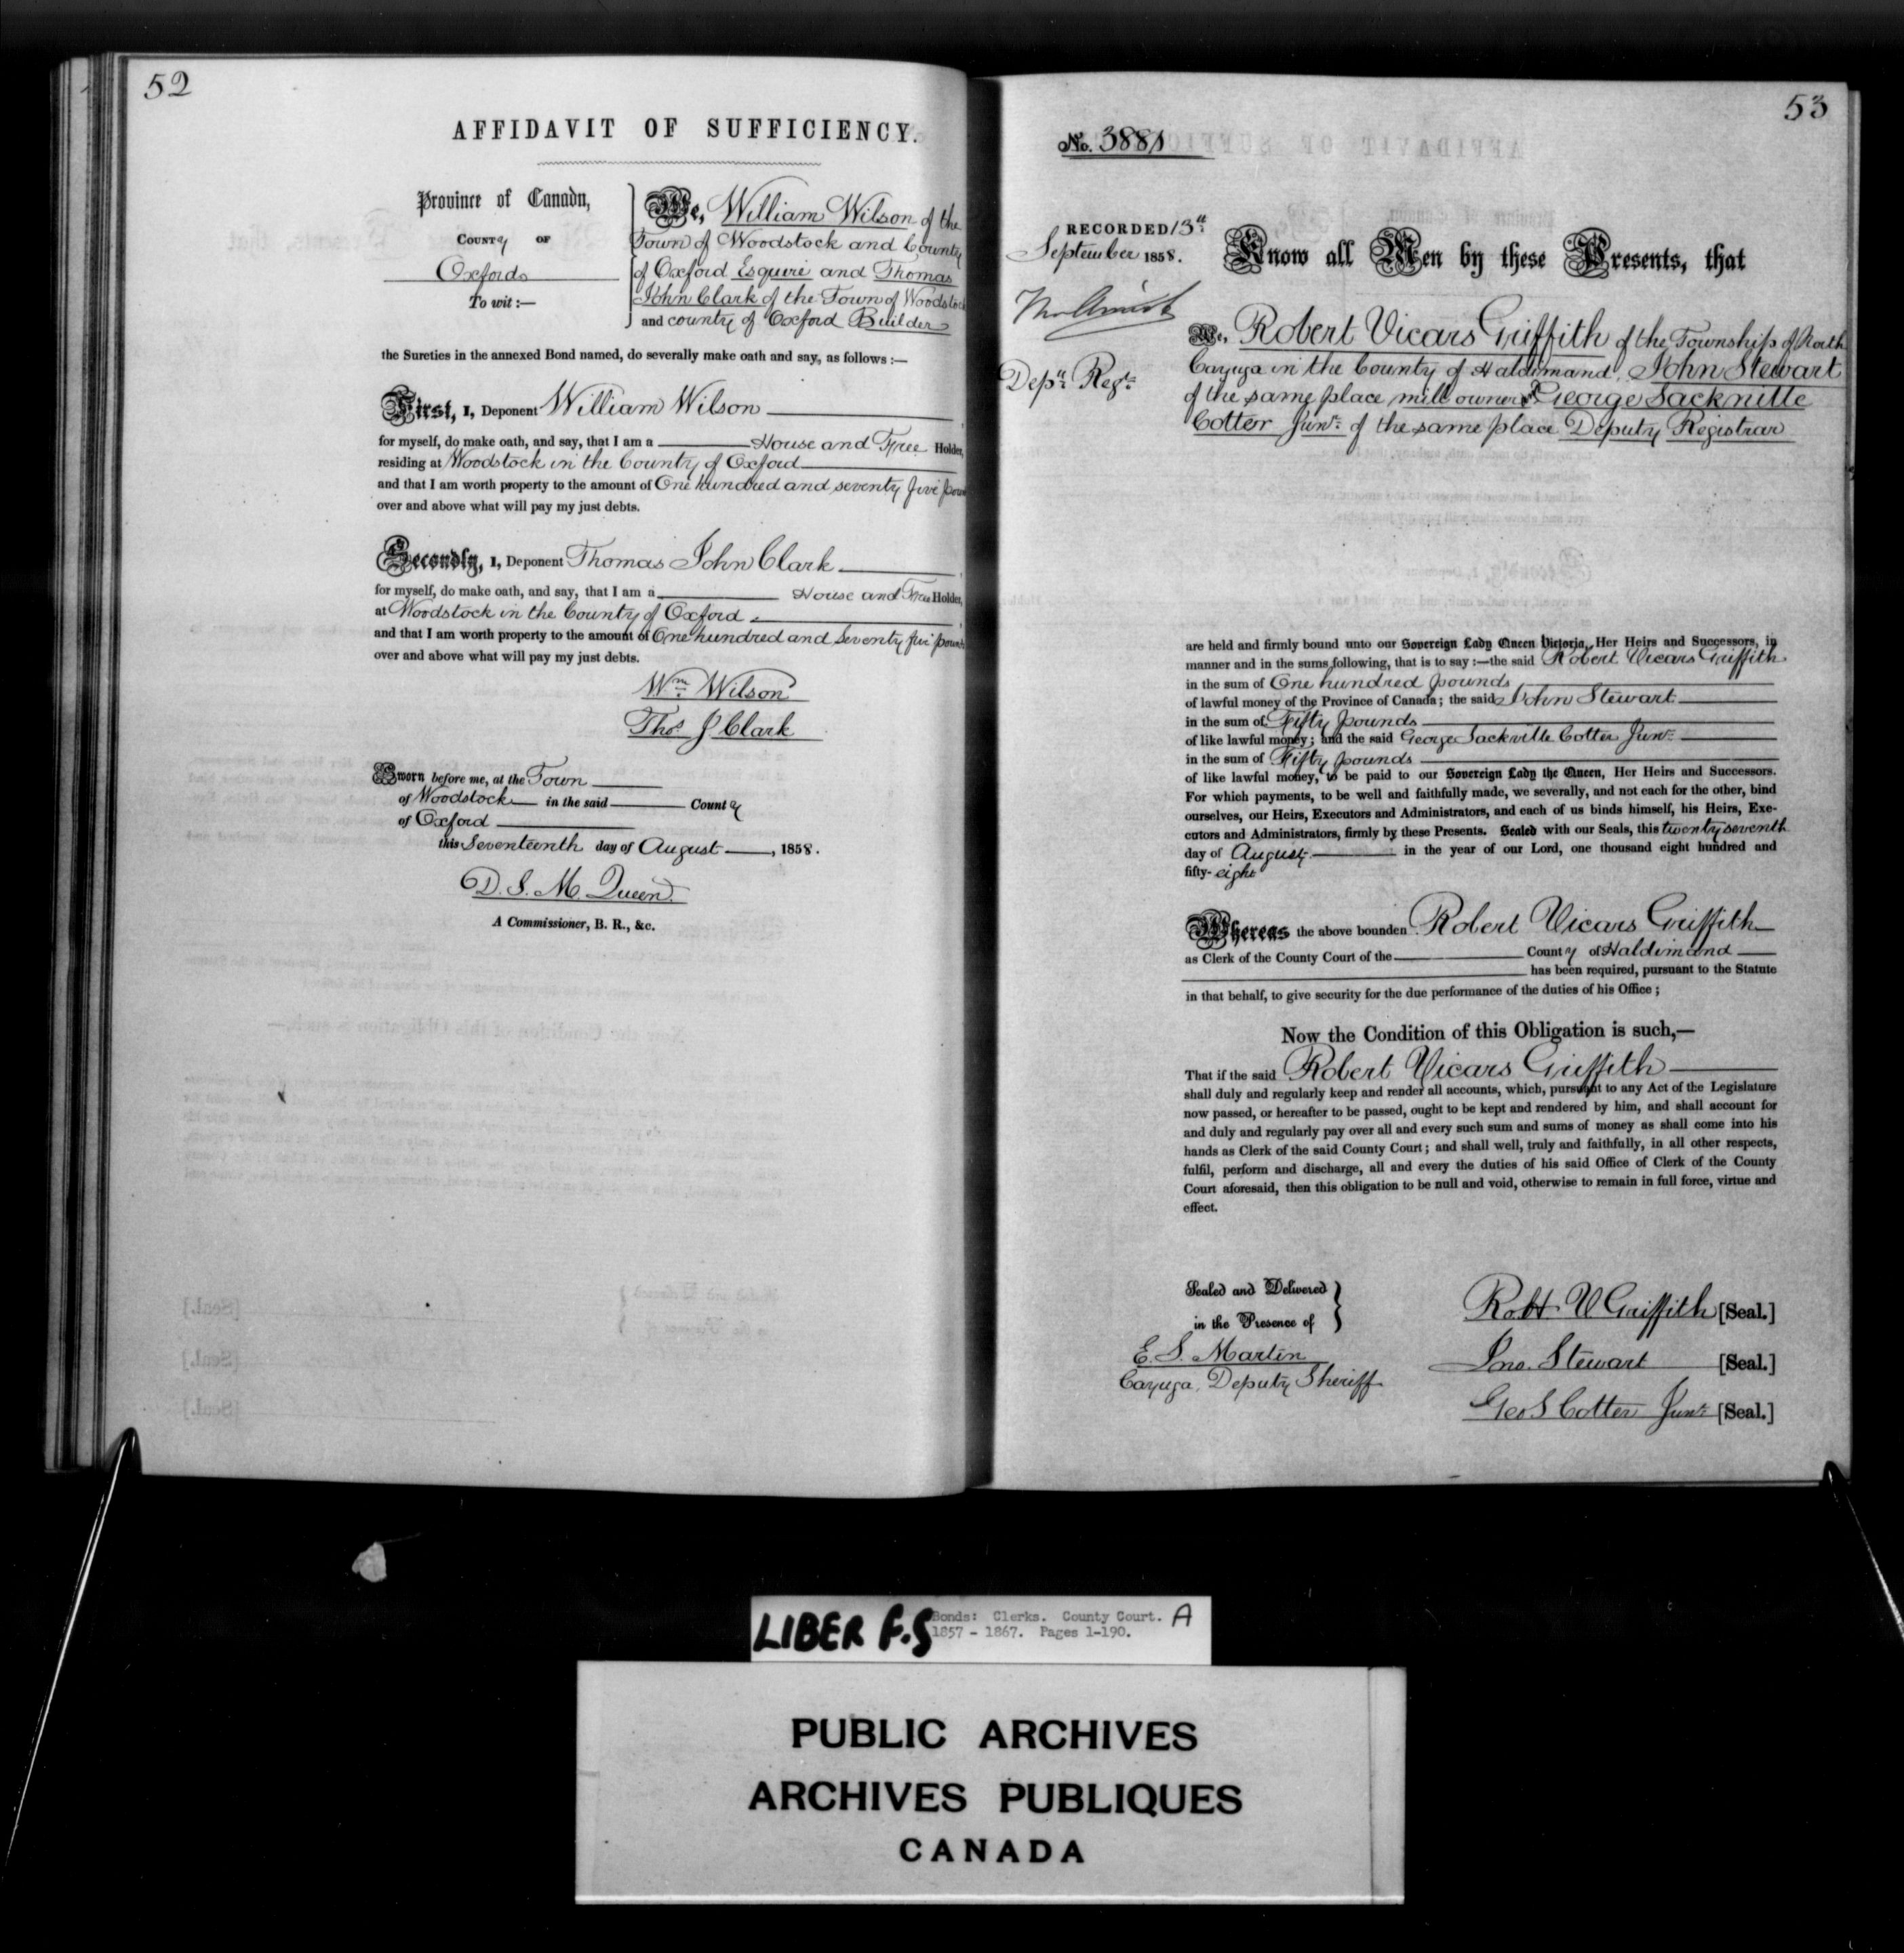 52
AFFIDAVIT OF SUFFICIENCY.
Province of Canada,
County of
Oxford
To wit:—
We, William Wilson of the
Town of Woodstock and County
of Oxford Esquire and Thomas
John Clark of the Town of Woodstock
and county of Oxford Builder
the Sureties in the annexed Bond named, do severally make oath and say, as follows:—
First, I, Deponent William Wilson
for myself, do make oath, and say, that I am a House and Free Holder,
residing at Woodstock in the County of Oxford
and that I am worth property to the amount of One hundred and seventy five pounds
over and above what will pay my just debts.
Secondly, I, Deponent Thomas John Clark
for myself, do make oath, and say, that I am a House and Free Holder,
at Woodstock in the County of Oxford
and that I am worth property to the amount of One hundred and Seventy five pounds
over and above what will pay my just debts.
Wm. Wilson
Thos. J Clark
Sworn before me, at the Town
of Woodstock in the said County
of Oxford
this Seventeenth day of August, 1858.
D. S. Mc. Queen.
A Commissioner, B. R., &c.
53
No. 3881
RECORDED 13th
September 1858.
Depy. Regr.
Know all Men by these Presents, that
We, Robert Vicars Griffith of the Township of North
Cayuga in the County of Haldimand, John Stewart
of the same place mill owner & George Sackville
Cotter Junr. of the same place Deputy Registrar
are held and firmly bound unto our Sovereign Lady Queen Victoria, Her Heirs and Successors, in
manner and in the sums following, that is to say:—the said Robert Vicars Griffith
in the sum of One hundred pounds
of lawful money of the Province of Canada; the said John Stewart
in the sum of Fifty pounds
of like lawful money; and the said George Sackville Cotter Junr.
in the sum of Fifty pounds
of like lawful money, to be paid to our Sovereign Lady the Queen, Her Heirs and Successors.
For which payments, to be well and faithfully made, we severally, and not each for the other, bind
ourselves, our Heirs, Executors and Administrators, and each of us binds himself, his Heirs, Exe-
cutors and Administrators, firmly by these Presents. Sealed with our Seals, this twenty seventh
day of August in the year of our Lord, one thousand eight hundred and
fifty-eight
Whereas the above bounden Robert Vicars Griffith
as Clerk of the County Court of the County of Haldimand
has been required, pursuant to the Statute
in that behalf, to give security for the due performance of the duties of his Office;
Now the Condition of this Obligation is such,—
That if the said Robert Vicars Griffith
shall duly and regularly keep and render all accounts, which, pursuant to any Act of the Legislature
now passed, or hereafter to be passed, ought to be kept and rendered by him, and shall account for
and duly and regularly pay over all and every such sum and sums of money as shall come into his
hands as Clerk of the said County Court; and shall well, truly and faithfully, in all other respects,
fulfil, perform and discharge, all and every the duties of his said Office of Clerk of the County
Court aforesaid, then this obligation to be null and void, otherwise to remain in full force, virtue and
effect.
Sealed and Delivered
in the Presence of
E. S. Martin
Cayuga, Deputy Sheriff
Robt. V Griffith [Seal.]
Jno. Stewart [Seal.]
Geo S Cotter Junr. [Seal.]
LIBER F.S
Bonds: Clerks. County Court. A
1857 - 1867. Pages 1-190.
PUBLIC ARCHIVES
ARCHIVES PUBLIQUES
CANADA